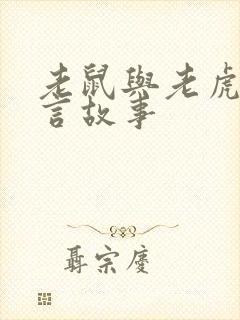 老鼠與老虎
言故事
聶宗慶